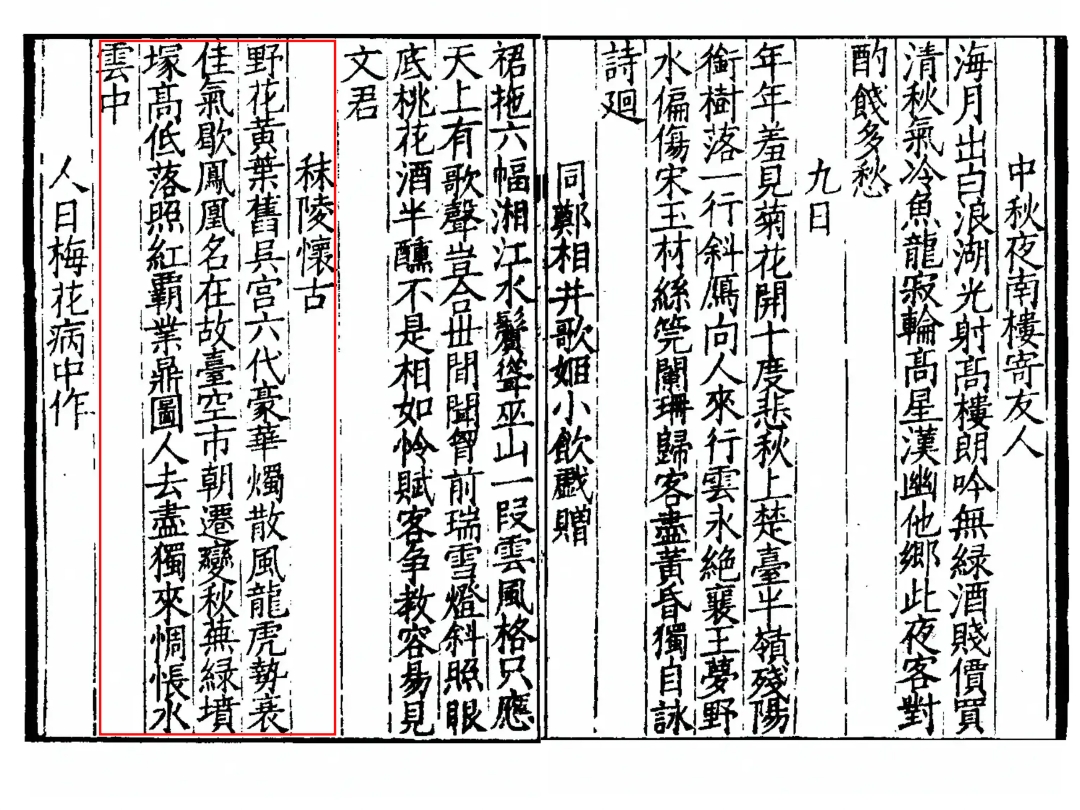 中秋夜南樓寄友人
海月出白浪湖光射高樓朗吟無綠酒賤價買
清秋氣冷魚龍寂輪高星漢幽他鄉此夜客對
酌餞多愁
九日
年年羞見菊花開十度悲秋上楚臺半嶺殘陽
銜樹落一行斜鴈向人來行雲永絕襄王夢野
水偏傷宋玉材絲筦闌珊歸客盡黃昏獨自詠
詩廻
同鄭相并歌姬小飲戲贈
裙拖六幅湘江水鬢聳巫山一段雲風格只應
天上有歌聲豈合丗間聞胷前瑞雪燈斜照眼
底桃花酒半醺不是相如怜賦客争教容易見
文君
秣陵懷古
野花黃葉舊吳宮六代豪華燭散風龍虎勢衰
佳氣歇鳳凰名在故臺空市朝遷變秋蕪綠墳
塚高低落照紅霸業鼎圖人去盡獨來惆悵水
雲中
人日梅花病中作